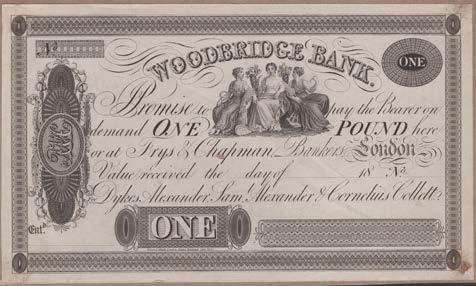 No
WOODBRIDGE BANK.
ONE
I Promise to pay the Bearer on
demand ONE POUND here
or at Frys & Chapman, Bankers, London
Value received the day of 18 No
Dykes Alexander, Saml. Alexander & Cornelius Collett.
Entd.
ONE